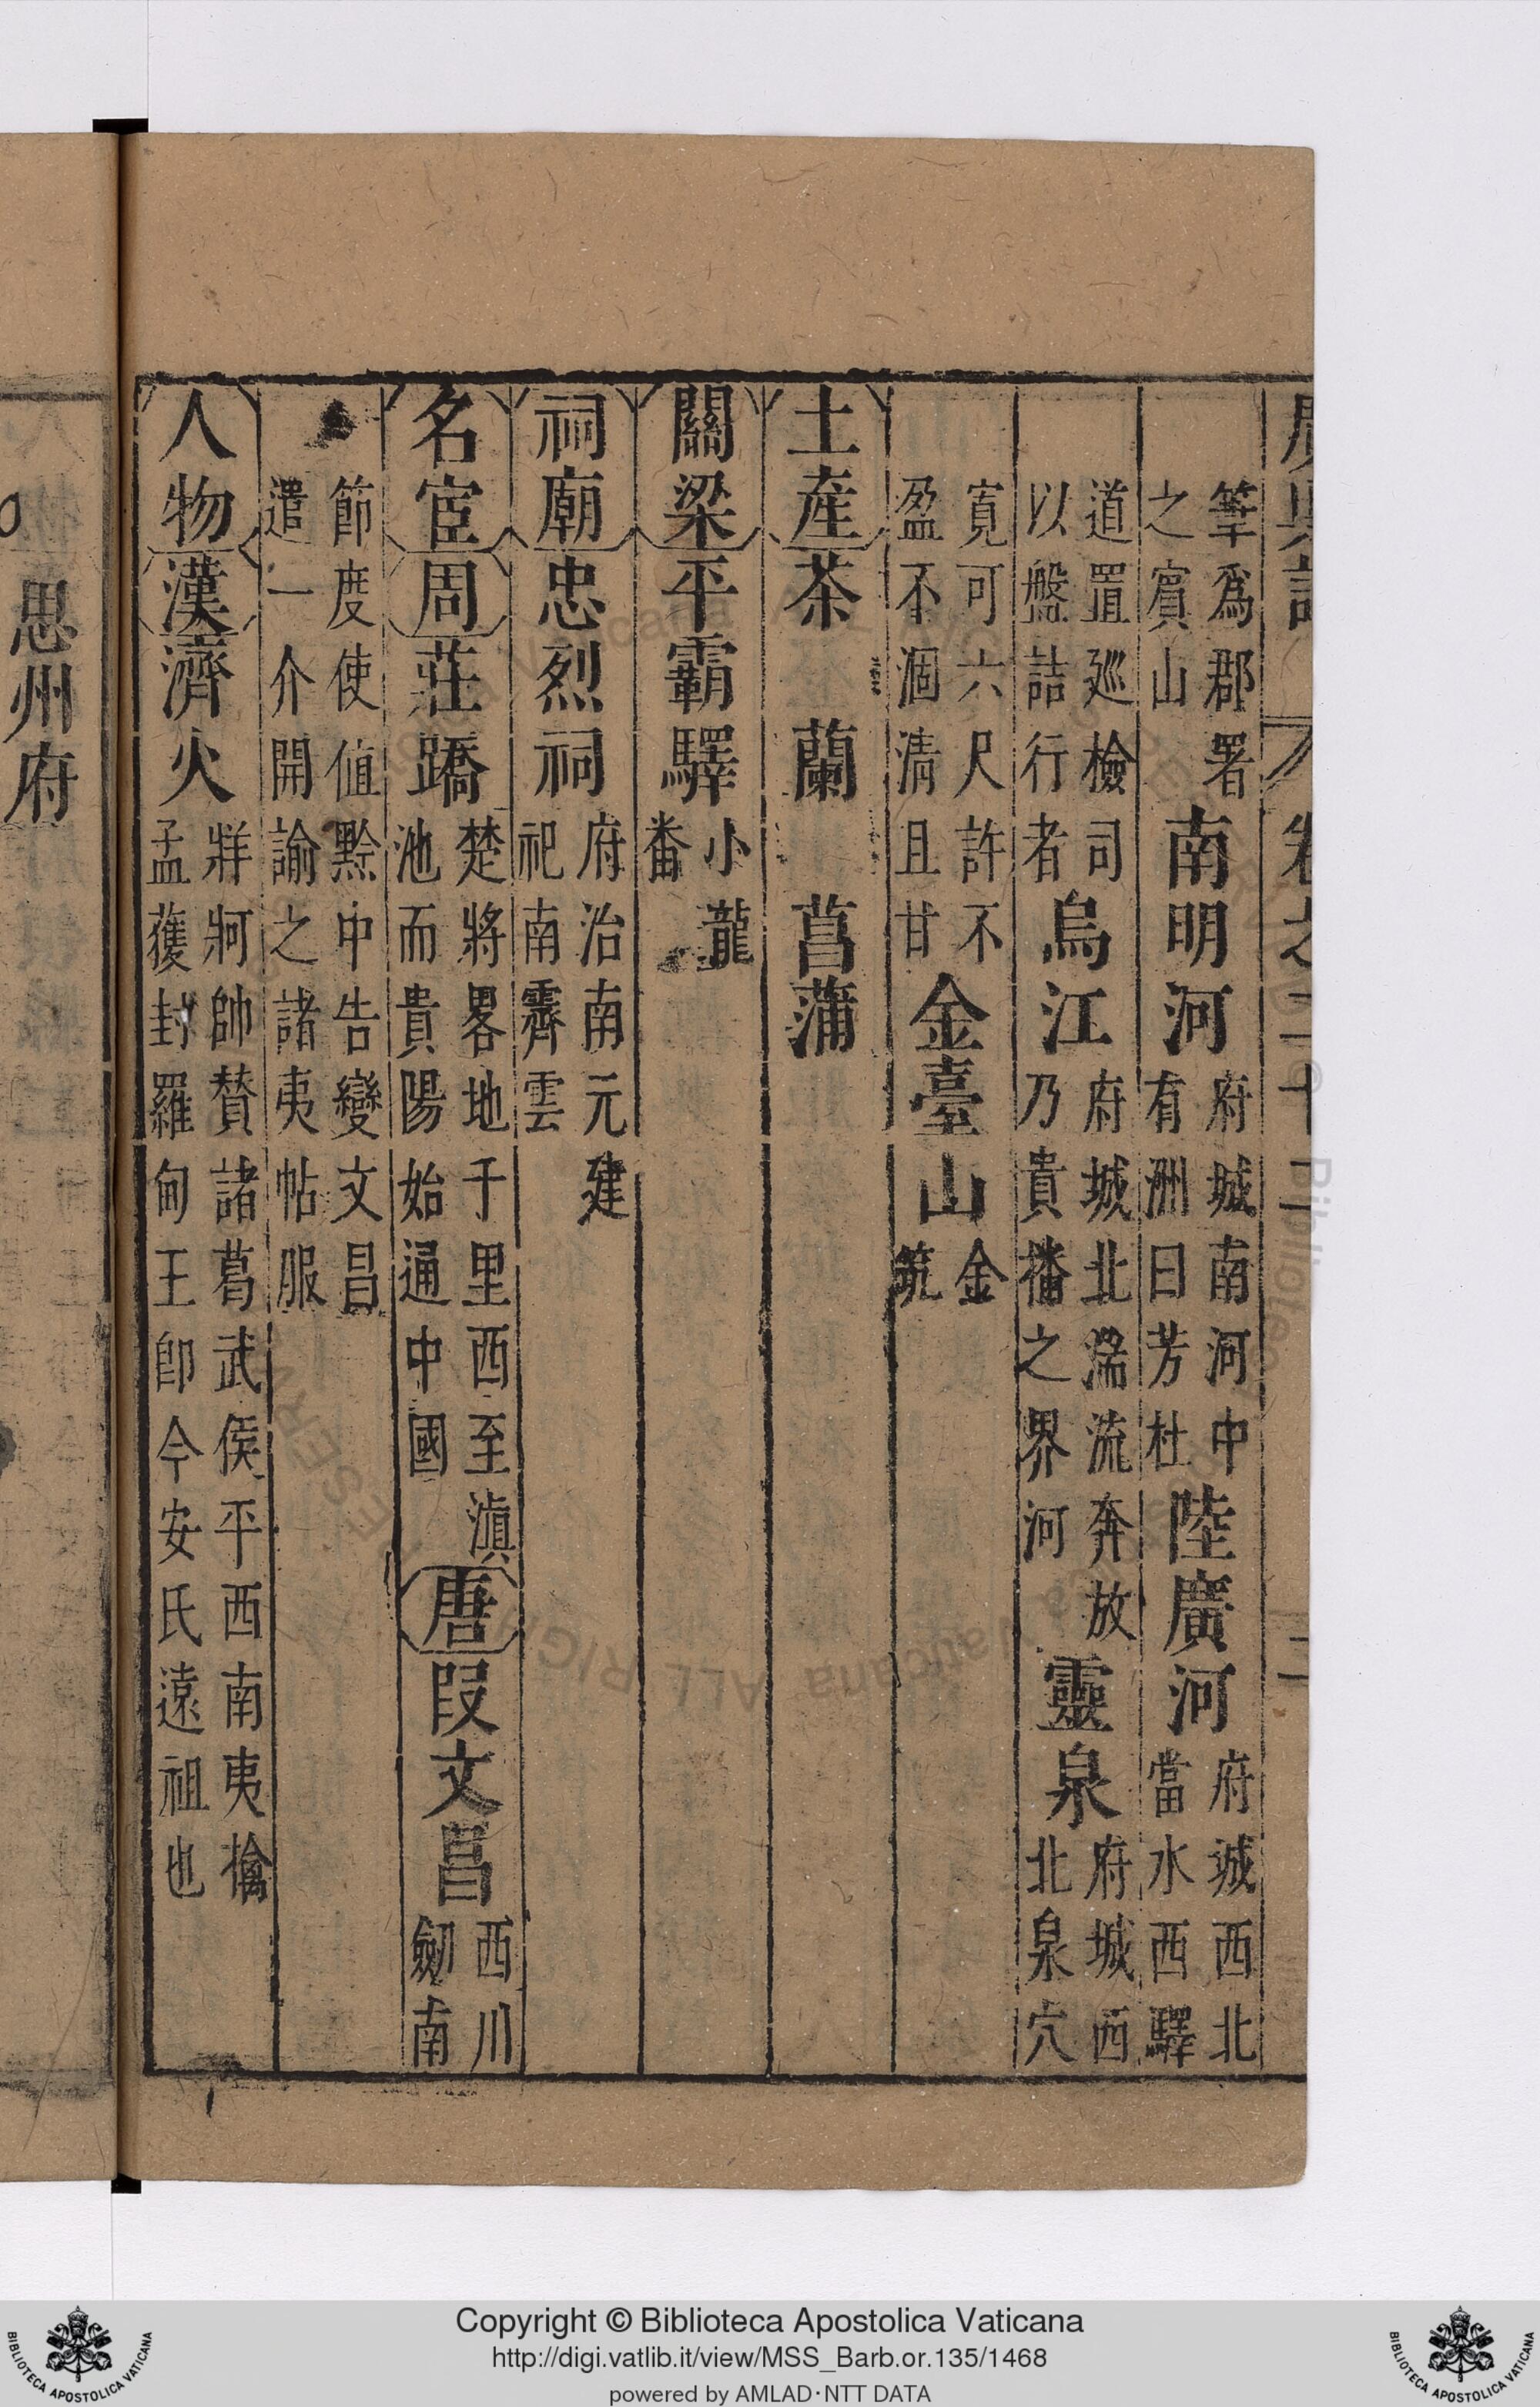 廣輿記 卷之二十二 二
筆爲郡署之賓山南明河府城南河中有洲曰芳杜陸廣河府城西北當水西驛
道置廵檢司以盤詰行者烏江府城北湍流奔放乃貴播之界河靈泉府城西北泉穴
寬可六尺許不盈不涸淸且甘金臺山金筑
土產茶 蘭 菖蒲
關梁平霸驛小龍番
祠廟忠烈祠府治南元建祀南霽雲
名宦周莊蹻楚將畧地于里西至滇池而貴陽始通中國唐段文昌西川劒南
節度使値黔中告變文昌遣一介開諭之諸夷帖服
人物漢濟火牂牁帥賛諸葛武侯平西南夷擒孟獲封羅甸王卽今安氏遠祖也
思州府
Copyright © Biblioteca Apostolica Vaticana
http://digi.vatlib.it/view/MSS_Barb.or.135/1468
powered by AMLAD·NTT DATA
BIBLIOTECA APOSTOLICA VATICANA
BIBLIOTECA APOSTOLICA VATICANA